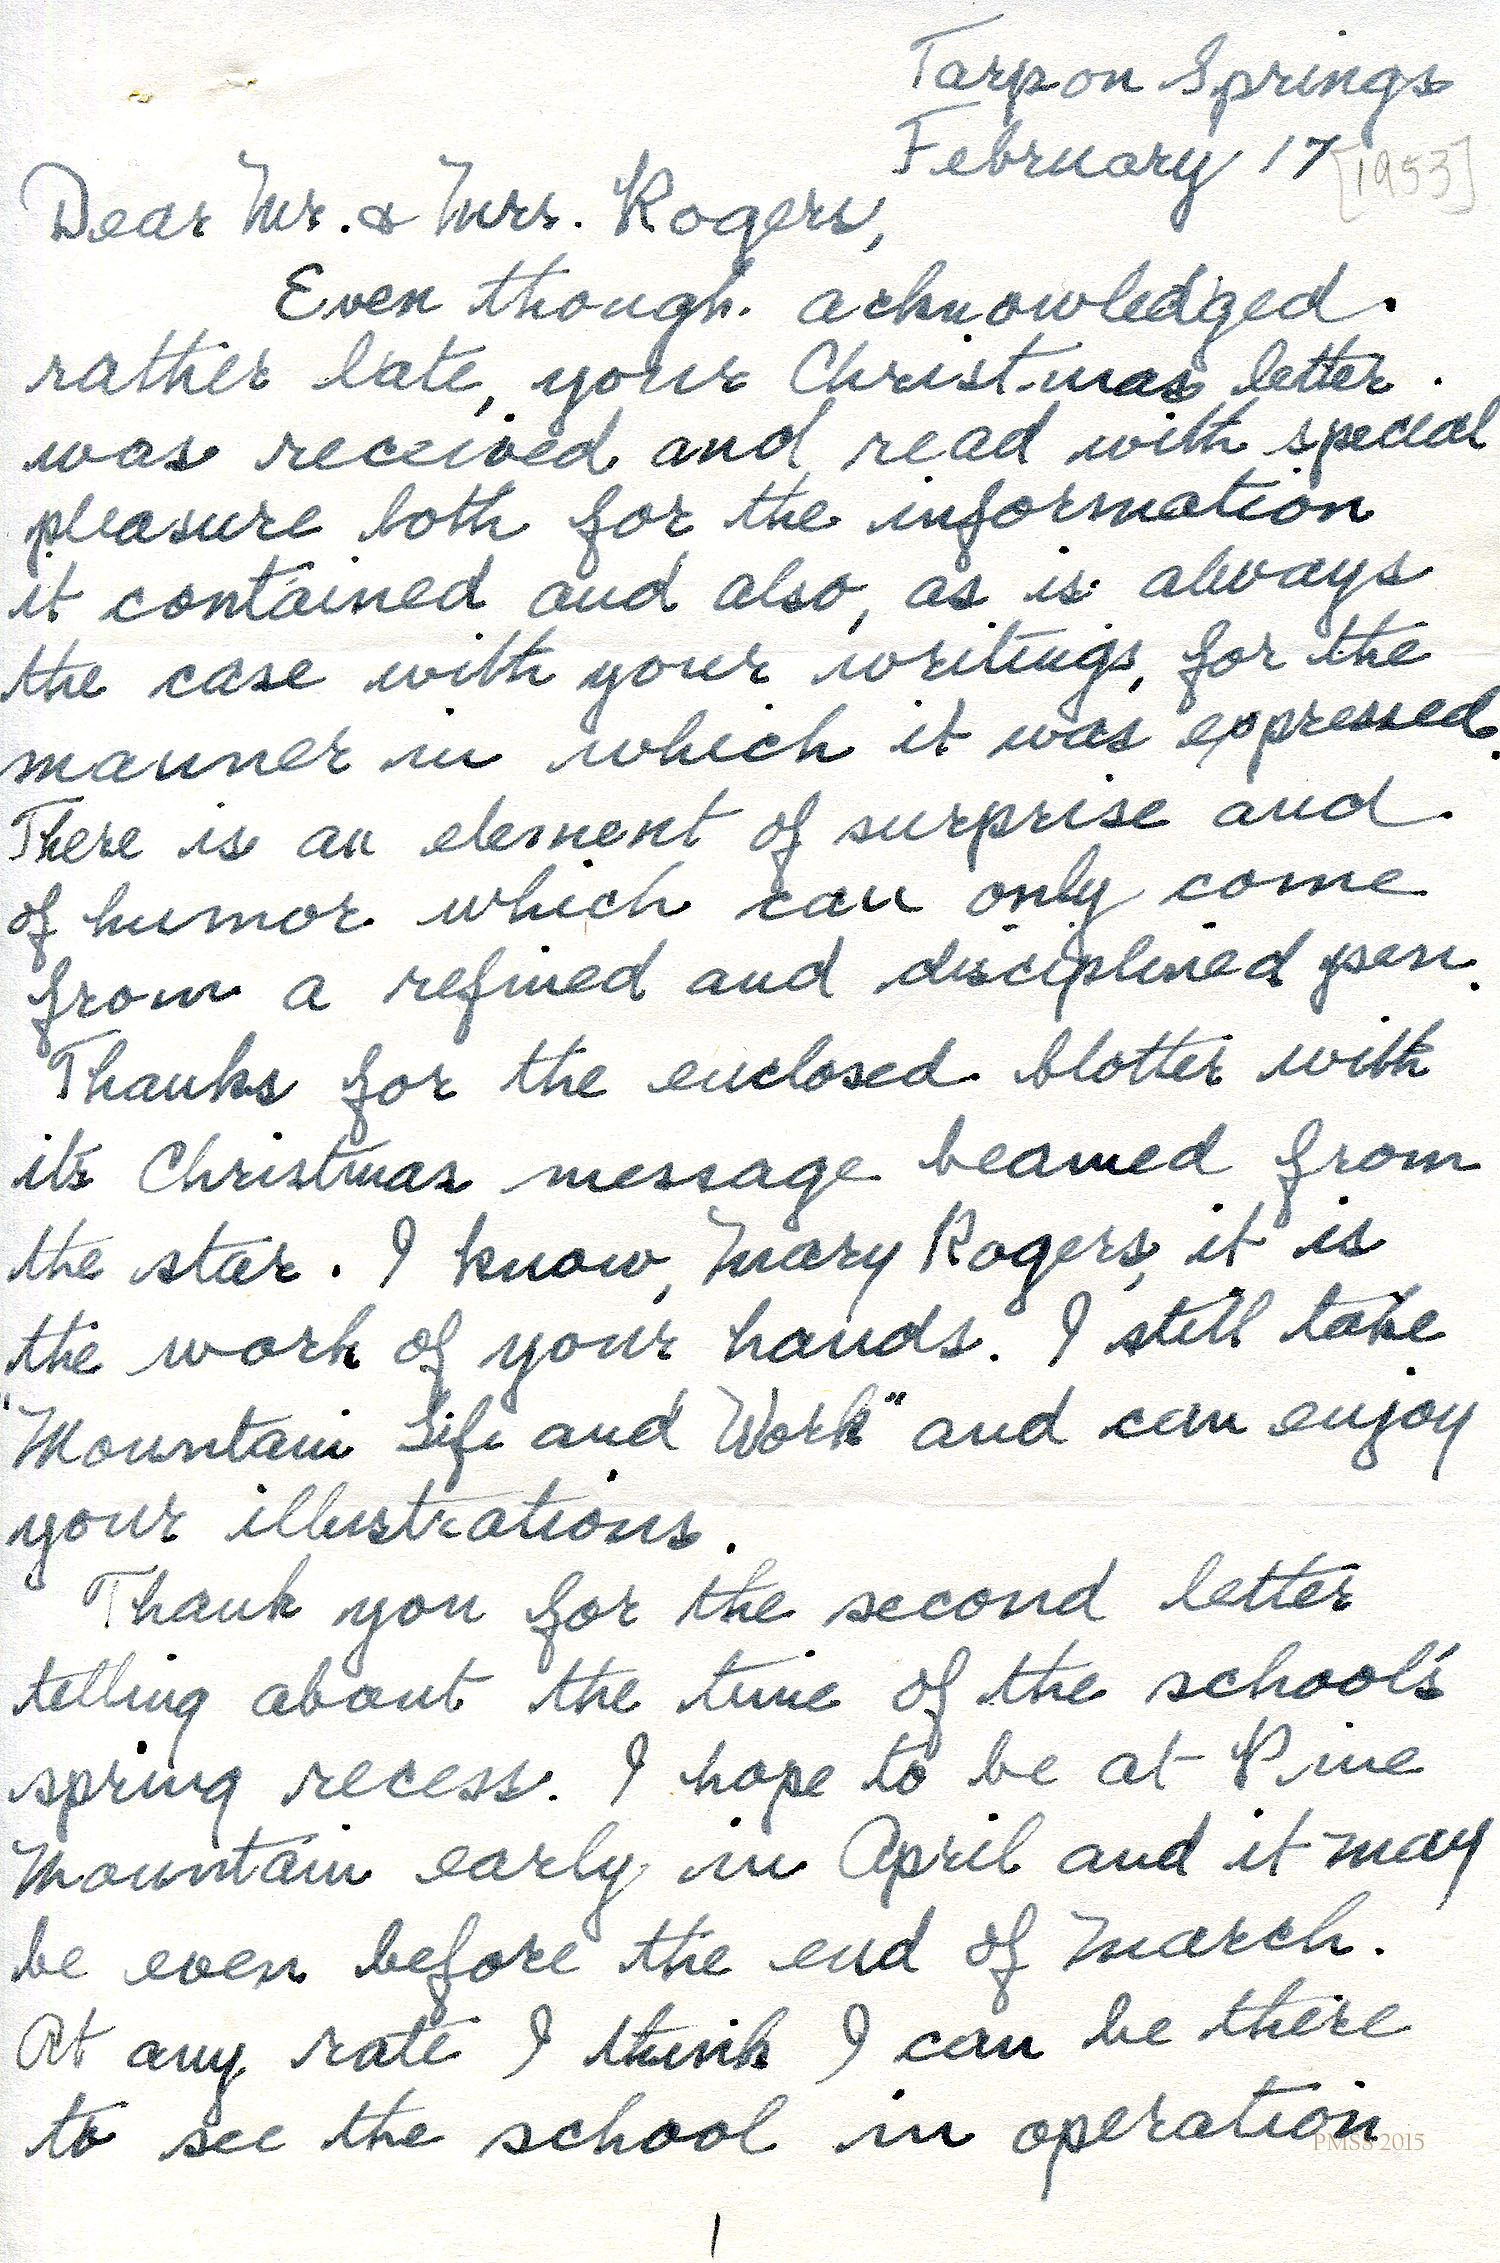 Tarpon Springs
February 17 [1953]
Dear Mr. & Mrs. Rogers,
Even though acknowledged
rather late, your Christmas letter
was received and read with special
pleasure both for the information
it contained and also, as is always
the case with your writings, for the
manner in which it was expressed.
There is an element of surprise and
of humor which can only come
from a refined and disciplined pen.
Thanks for the enclosed blotter with
it's Christmas message beamed from
the star. I know, Mary Rogers, it is
the work of your hands. I still take
"Mountain Life and Work" and can enjoy
your illustrations.
Thank you for the second letter
telling about the time of the school's
spring recess. I hope to be at Pine
Mountain early in April and it may
be even before the end of March.
At any rate I think I can be there
to see the school in operation
PMSS 2015
1